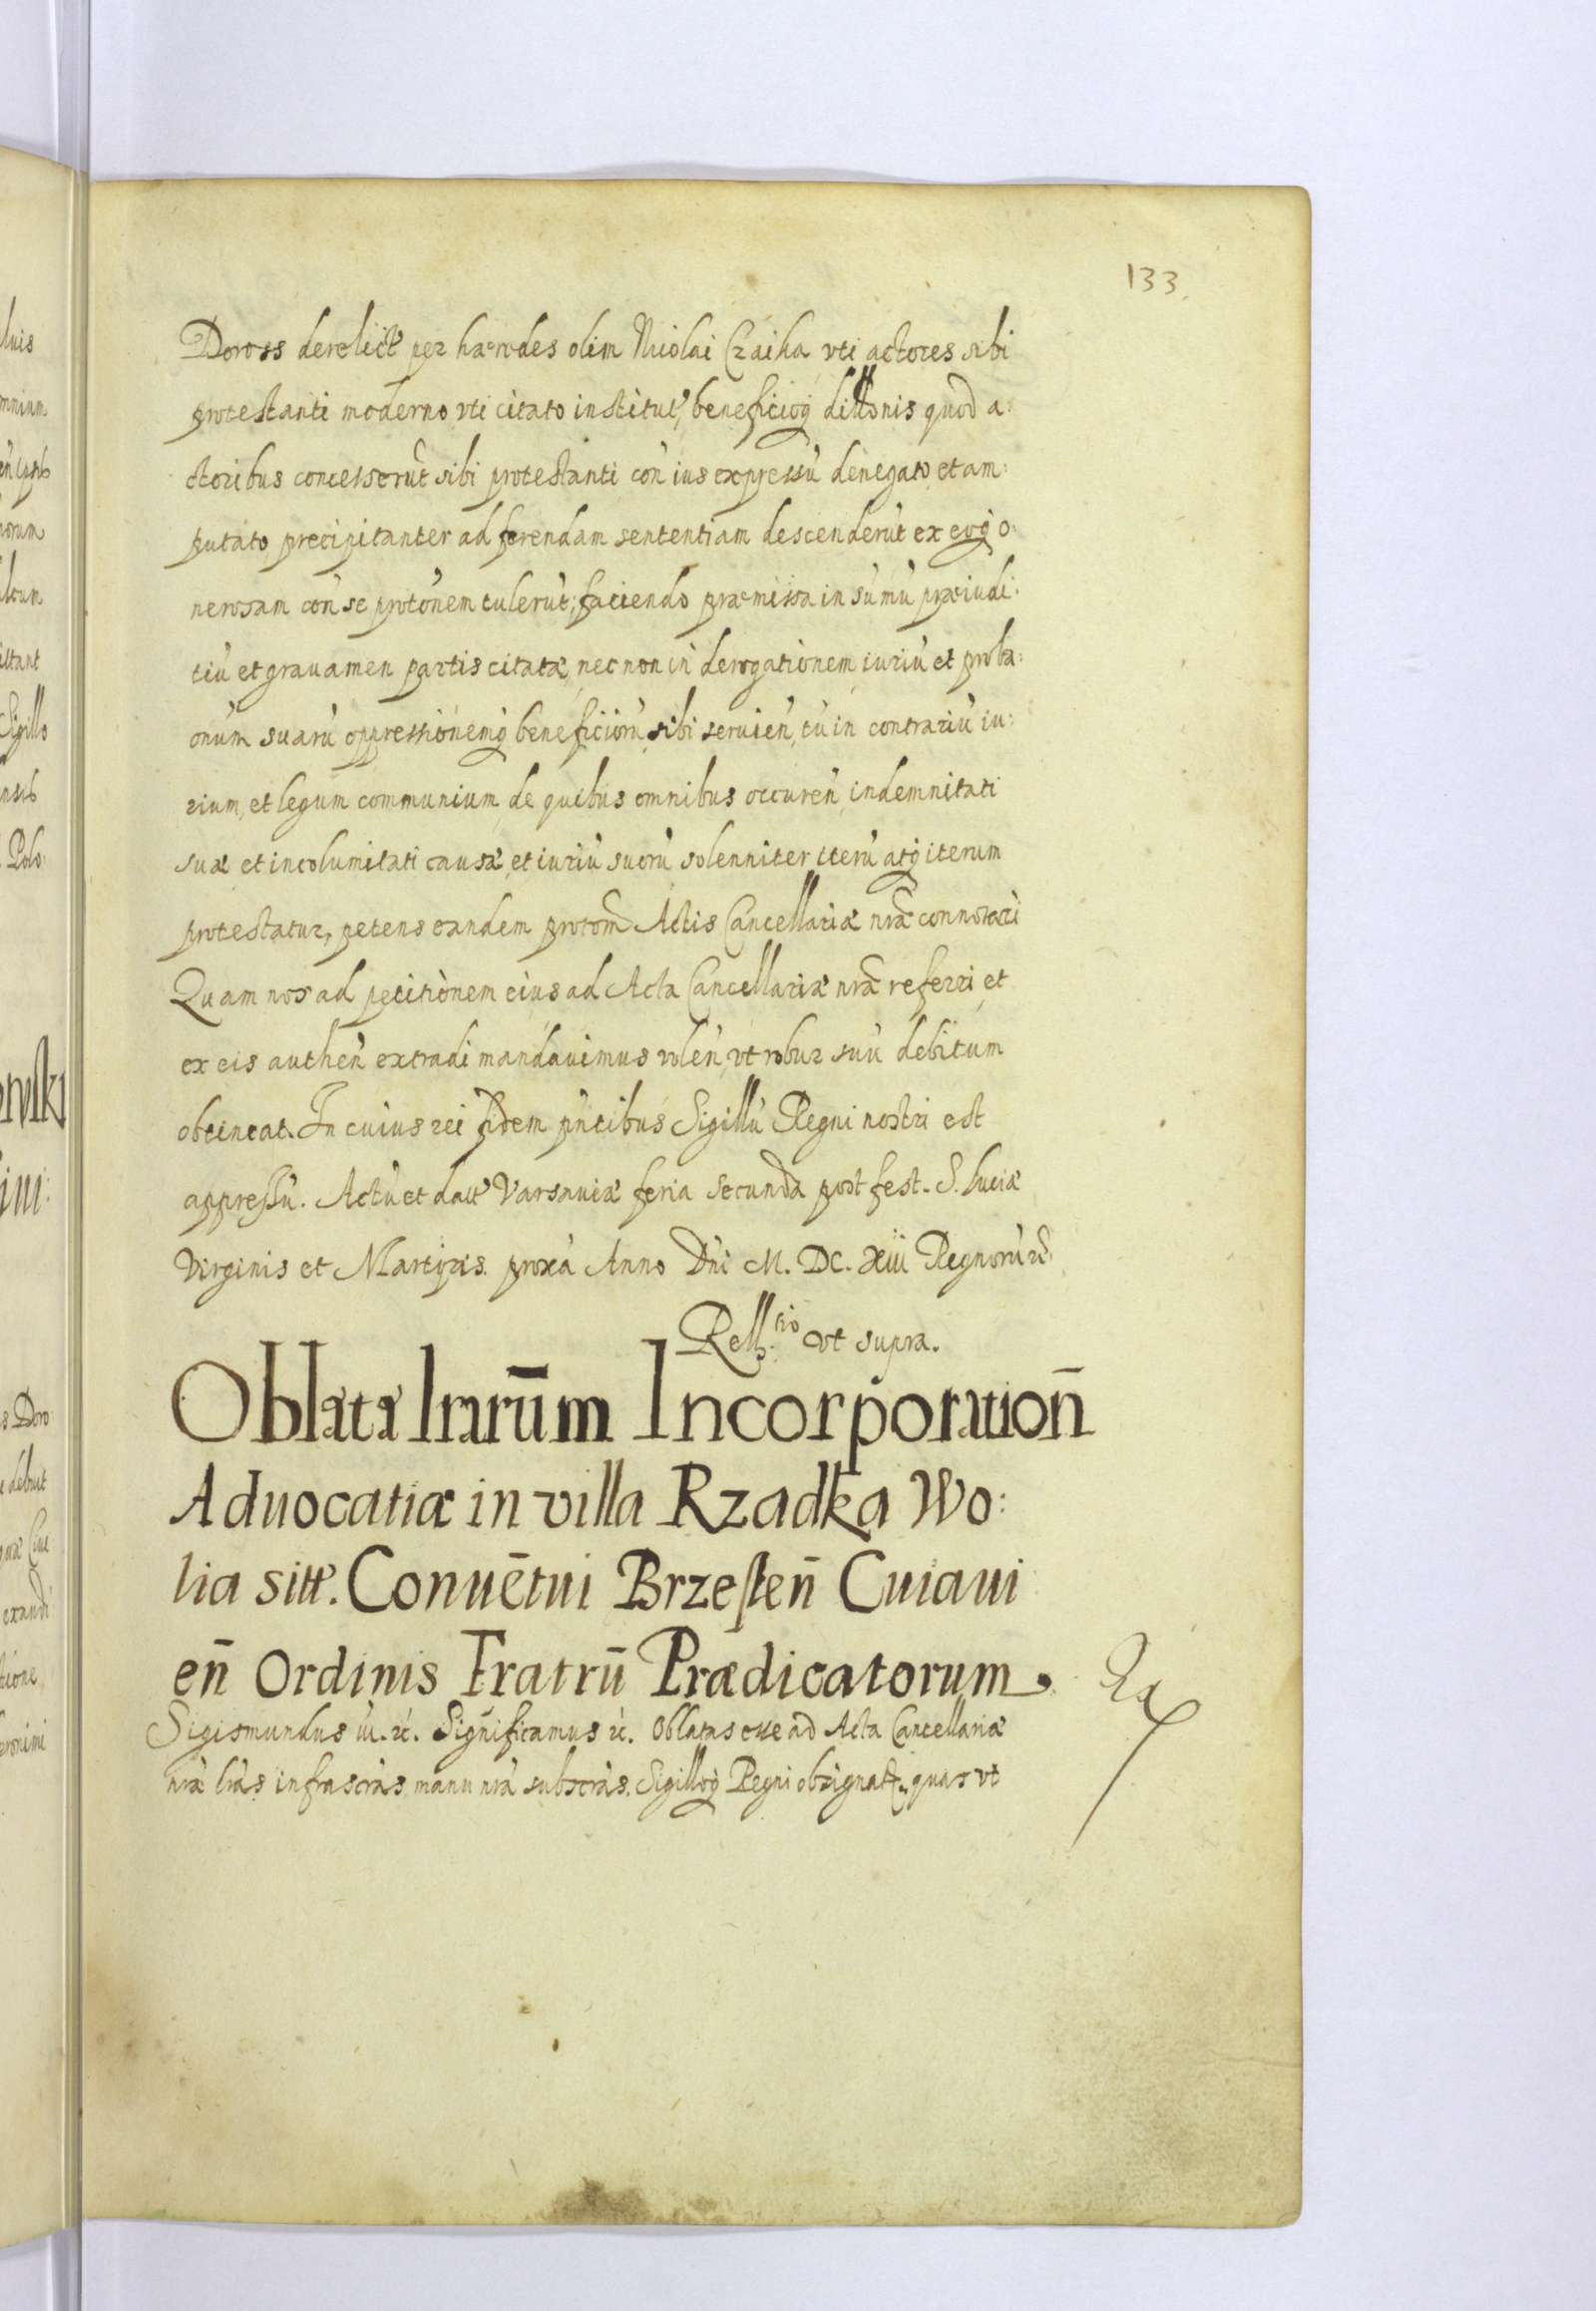 133.
Doross derelict per hæredes olim Nicolai Czaika vti actores sibi
protestanti moderno vti citato institut, beneficioq dillonis quod a:
ctoribus concesserūt sibi protestanti con ius expressū denegato et am:
putato precipitanter ad ferendam sententiam descenderūt ex eoq o:
nerosam con se protōnem tulerūt, faciendo præmissa in sūmū præiudi:
tiū et grauamen partis citatæ, nec non in derogationem iuriū et proba:
onum suarū oppressionemq beneficiorū sibi seruien, tū in contrariū iu:
rium, et legum communium, de quibus omnibus occuren indemnitati
suæ et incolumitati causæ, et iuriū suorū solenniter iterū atq iterum
protestatur, petens eandem protōm Actis Cancellariæ nrǣ connotari
Quam nos ad petitionem eius ad Acta Cancellariæ nrǣ referri, et
ex eis authen̄ extradi mandauimus volen̄, vt robur suū debitum
obtineat. In cuius rei fidem pn̄tibus Sigillū Regni nostri est
appressū. Actū et datt Varsauiæ feria secunda post fest. S. Luciæ
Virginis et Martyris proxā Anno Dn̄i M. DC. Xiii Regnorū n̄
Rellatio vt supra.
Oblata lrarūm Incorporation̄
Aduocatiæ in villa Rzadka Wo:
lia sitt. Conuētui Brzesten̄ Cuiaui
en̄ Ordinis Fratrū Prædicatorum.
Sigismundus iii. rc. Significamus rc. Oblatas esse ad Acta Cancellariæ
nrǣ lrās infrascrās manu nrā subscrās. Sigilloq Regni obsignat. quas vt